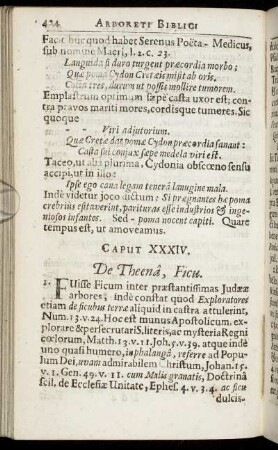 424 ARBORETI BIBLICI
Facit huc quod habet Serenus Poëta - Medicus,
sub nomine Macri, l. 2. c. 23.
Languida si duro turgent præcordia morbo;
Quæ poma Cydon Cretæis misit ab oris.
Cocta teres, ducum ut possit mollire tumorem.
Emplastrum optimum sæpè casta uxor est; con-
tra pravos mariti mores, cordisque tumeres. Sic
quoque
- - Viri adjutorium.
Quæ Cretæ dat poma Cydon præcordia sanant:
Casta sui conjux sæpe medela viri est.
Taceo, ut alia plurima, Cydonia obscœno sensu
accipi, ut in illo:
Ipse ego cana legam tenerâ lanugine mala.
Indè videtur joco dictum: Si pregnantes hæ poma
crebriùs estitaverint, parituras esse industrios & inge-
niosos infantes. Sed - poma nocent capiti. Quare
tempus est, ut amoveamus.
CAPUT XXXIV.
De Theenâ, Ficu.
1. Fuisse Ficum inter præstantissimas Judææ
arbores; indè constat quod Exploratores
etiam de ficubus terræ aliquid in castra attulerint,
Num. 13. v. 24. Hoc est munus Apostolicum, ex-
plorare & perscrutari S, literis, ac mysteria Regni
cœlorum, Matth. 13. v. 11. Joh. 5. v. 39. atque indè
uno quasi humero, in phalangâ, referre ad Popu-
lum Dei, uvam admirabilem Christum, Johan. 15.
v. 1. Gen. 49. v. 11. cum Malis granatis, Doctrinâ
scil. de Ecclesiæ Unitate, Ephes. 4. v. 3. 4. ac ficu
dulcis-